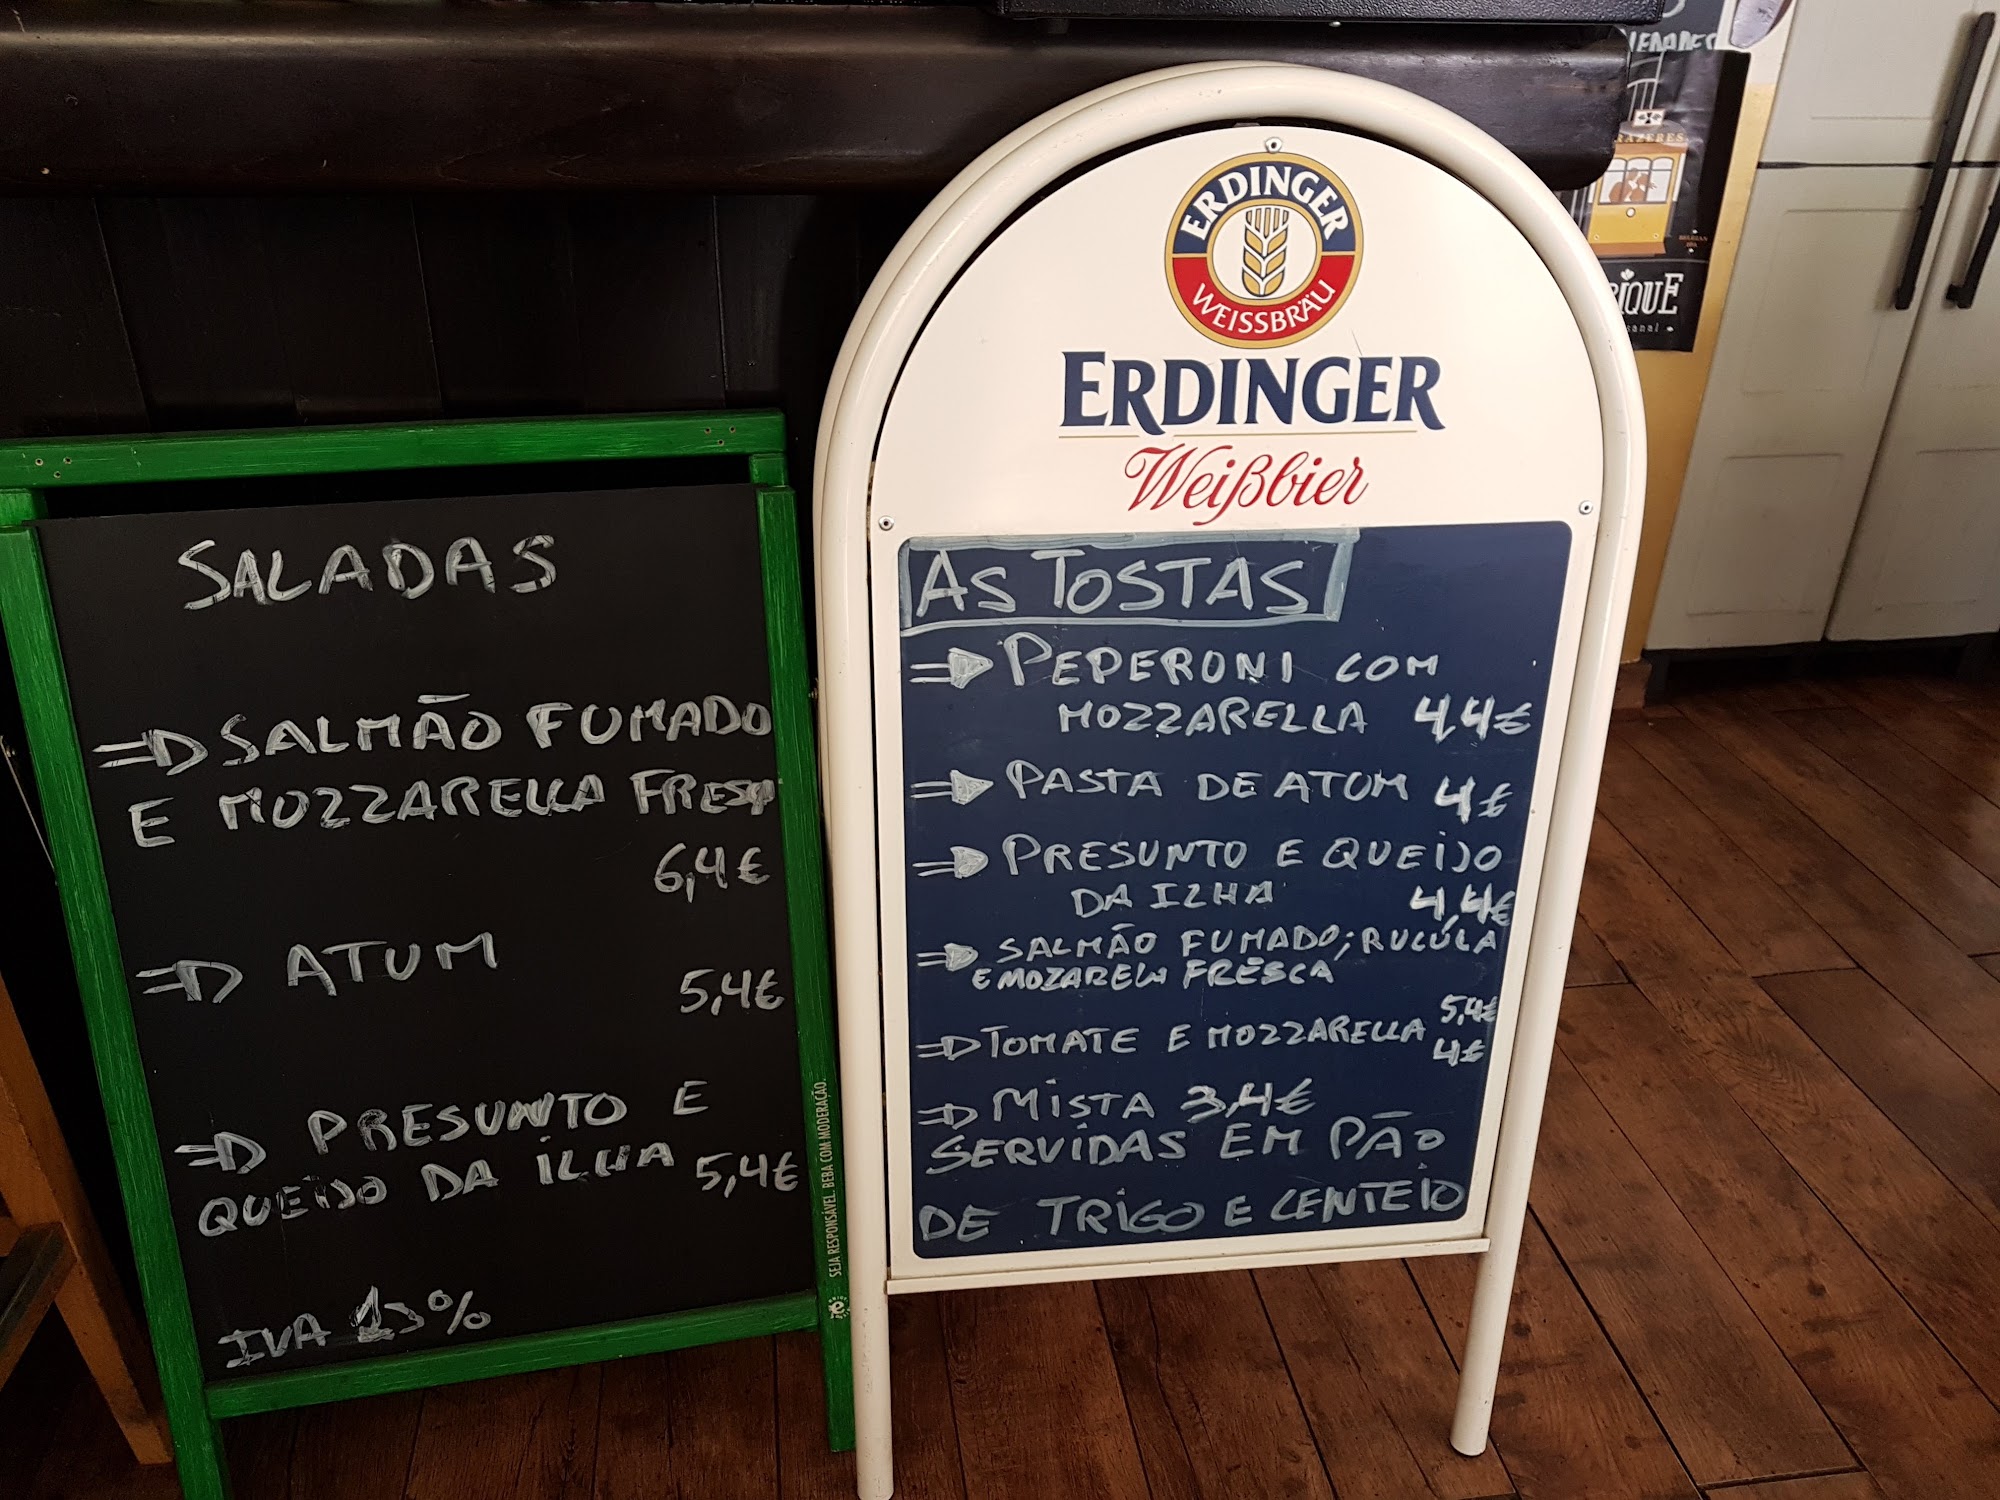 SALADAS
SALMÃO FUMADO
E MOZZARELLA FRESCA
6,4€
ATUM
5,4€
PRESUNTO E
QUEIJO DA ILHA 5,4€
IVA %
SEJA RESPONSÁVEL. BEBA COM MODERAÇÃO.
ERDINGER
WEISSBRÄU
ERDINGER
Weißbier
AS TOSTAS
PEPERONI COM
MOZZARELLA 4,4€
PASTA DE ATUM 4€
PRESUNTO E QUEIJO
DA ILHA 4,4€
SALMÃO FUMADO; RUCÚLA
E MOZARELA FRESCA
5,4€
TOMATE E MOZZARELLA 4€
MISTA 3,4€
SERVIDAS EM PÃO
DE TRIGO E CENTEIO
RAZERES
BELGIAN
IPA
RIQUE
sanal